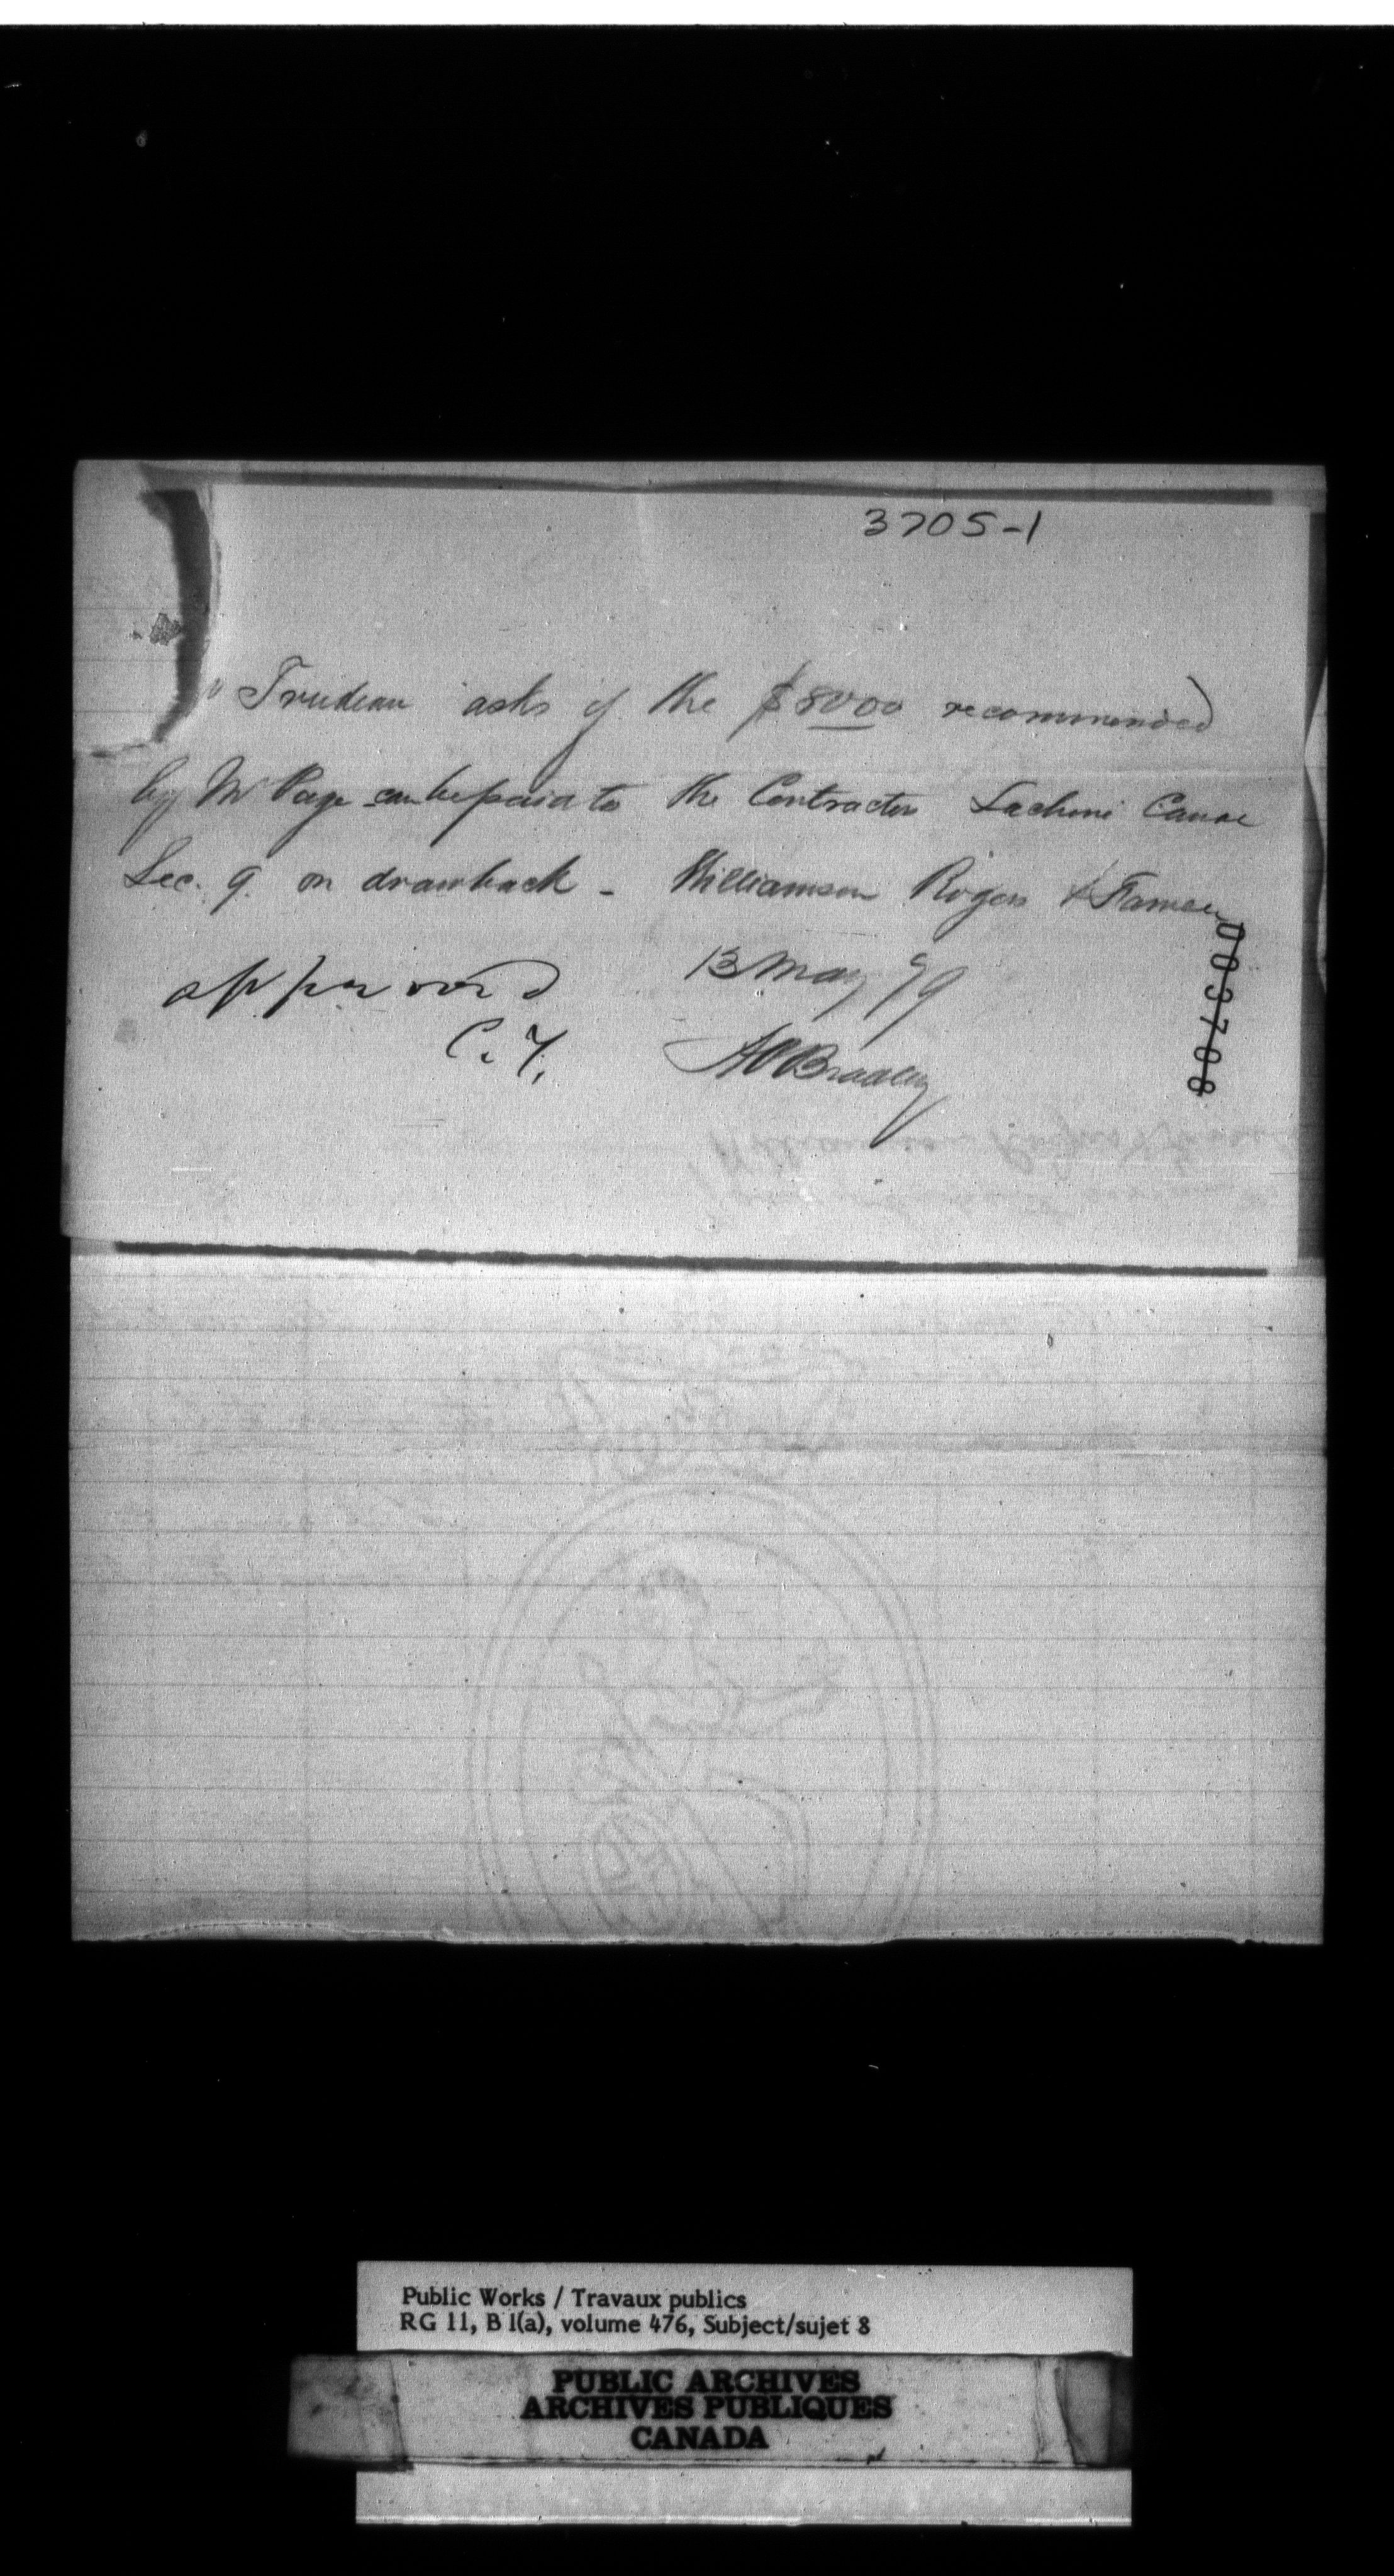 3705-1
Trudeau asks if the $8000 recommended
by Mr Page can be paid to the Contractor Lachine Canal
Sec. 9. on drawback - Williamson Rogers &
approved 13 May 79
C. T. ACBradley
003708
Public Works / Travaux publics
RG 11, B 1(a), volume 476, Subject/sujet 8
PUBLIC ARCHIVES
ARCHIVES PUBLIQUES
CANADA